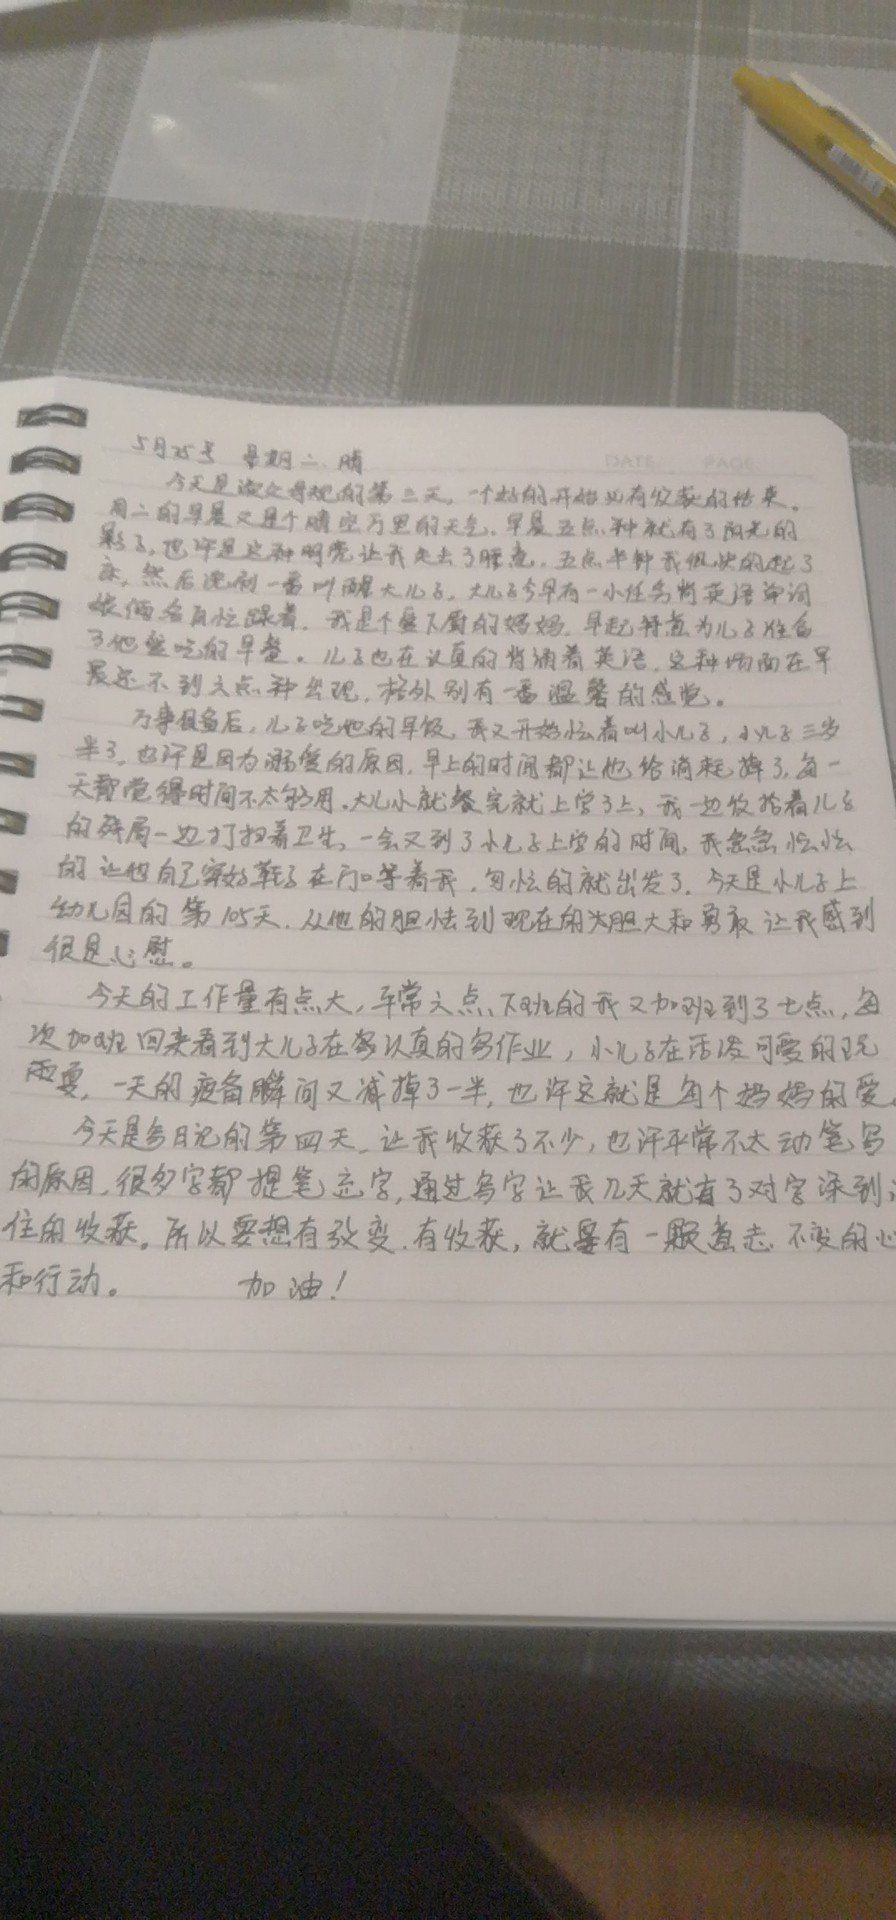 DATE PAGE
5月25号 星期二 晴
今天是 的第三天，一个好的开始必有收获的结果。
周二的早晨又是个晴空万里的天气，早晨五点钟就有了阳光的
影子，也许是这种明亮让我失去了睡意，五点半钟我很快的起了
床，然后洗刷一番叫醒大儿子，大儿子今早有一小任务背英语单词
娘俩各自忙碌着，我是个 下厨的妈妈，早起特意为儿子准备
了他爱吃的早餐。儿子也在认真的背诵着英语，这种场面在早
晨还不到六点钟出现，格外别有一番温馨的感觉。
万事俱备后，儿子吃他的早饭，我又开始忙着叫小儿子，小儿子三岁
半了，也许是因为溺爱的原因，早上的时间都让他给消耗掉了，每一
天都觉得时间不太够用，大儿小就餐完就上学了上，我一边收拾着儿子
的残局一边打扫着卫生，一会又到了小儿子上学的时间，我急急忙忙
的让他自己穿好鞋子在门口等着我，匆忙的就出发了，今天是小儿子上
幼儿园的第105天，从他的胆怯到现在的大胆大和勇敢让我感到
很是心慰。
今天的工作量有点大，平常六点下班的我又加班到了七点，每
次加班回来看到大儿子在家认真的写作业，小儿子在活泼可爱的玩
耍，一天的疲备瞬间又减掉了一半，也许这就是每个妈妈的爱
今天是写日记的第四天，让我收获了不少，也许平常不太动笔写
的原因，很多字都提笔忘字，通过写字让我几天就有了对字深刻
住的收获。所以要想有改变，有收获，就要有一颗意志不变的心
和行动。 加油！